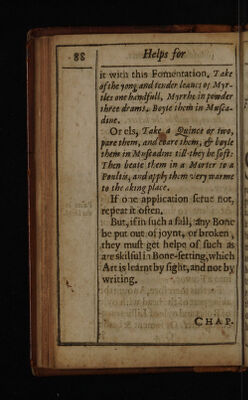 88 Helps for
it with this Fomentation. Take
of the yong and tender leaues of Myr-
tles one handfull, Myrrhe in powder
three drams, Boyle them in Musca-
dine.
Or els, Take a Quince or two,
pare them, and coare them, & boyle
them in Muscadine till they be soft:
Then beate them in a Morter to a
Poultis, and apply them very warme
to the aking place.
If one application serue not,
repeat it often.
But, if in such a fall, any Bone
be put out of joynt, or broken,
they must get helpe of such as
are skilful in Bone-setting, which
Art is learnt by sight, and not by
writing.
CHAP.